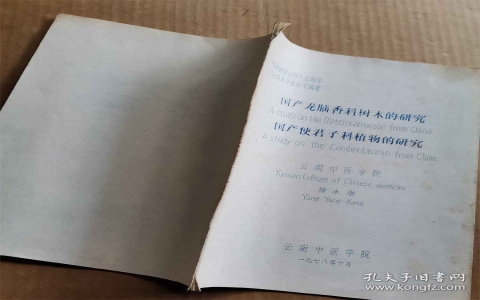 国产龙脑香科树木的研究
A study on the Dipterocarpaceae from China
国产使君子科植物的研究
A study on the Combretaceae from China
云南中医学院
Yunnan College of Chinese medicine
Yang Yong-Kang
云南中医学院
一九七八年十月
孔夫子旧书网
www.kongfz.com